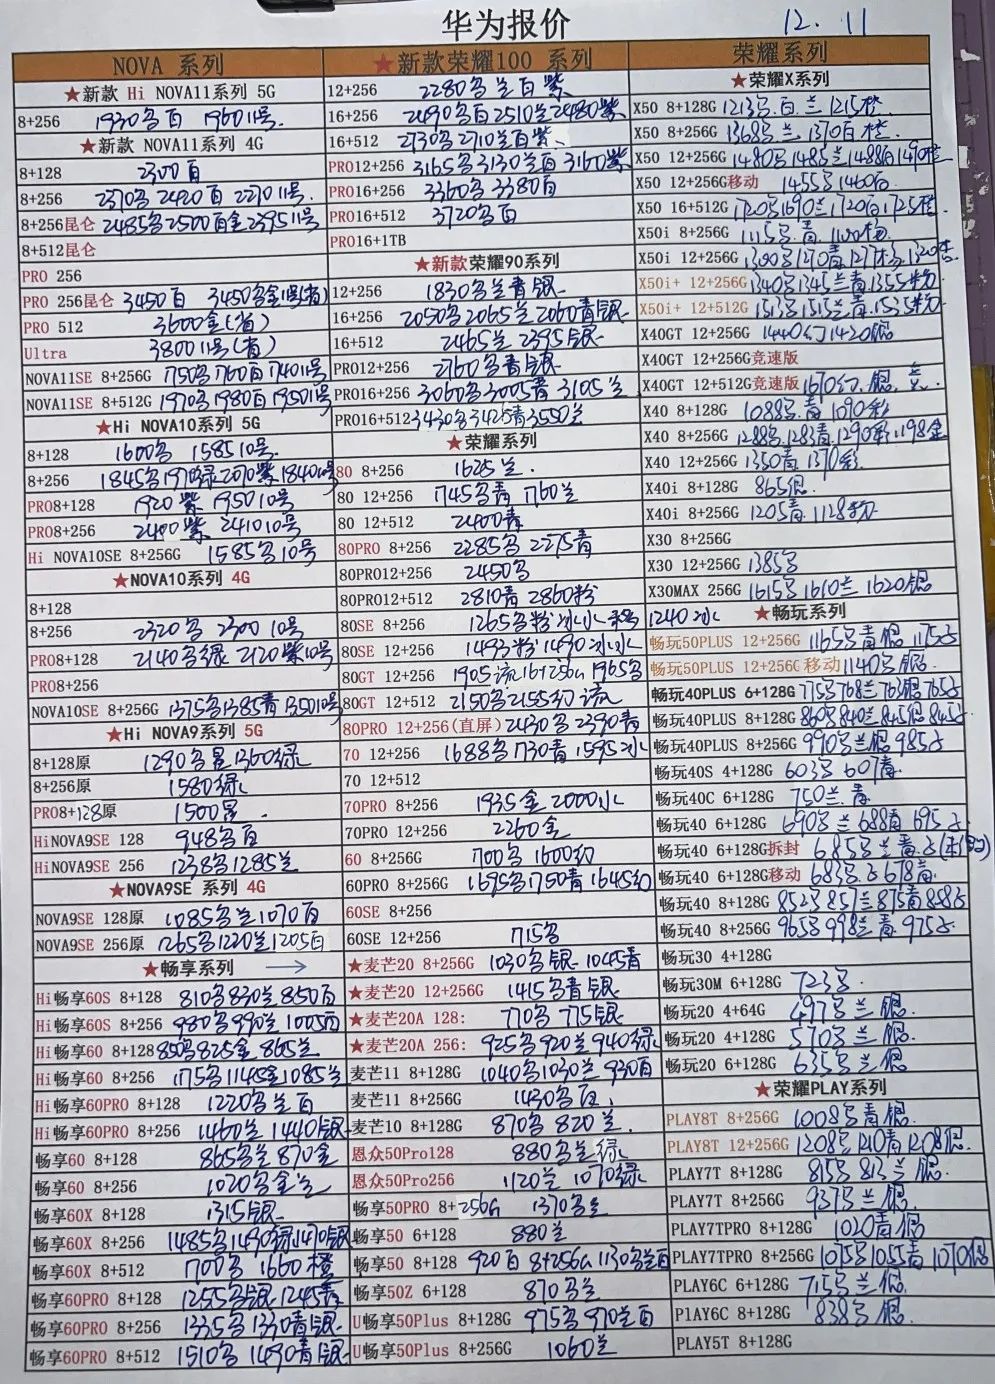 华为报价
12.11
NOVA 系列
★新款 Hi NOVA11系列 5G
8+256 1930名百 1960 11号.
★新款 NOVA11系列 4G
8+128 2300百
8+256 2370名 2420百 2270 11号.
8+256昆仑 2485名2500百金2395 11号
8+512昆仑
PRO 256
PRO 256昆仑 3450百
PRO 512 3600金(省)
Ultra 3800 11号(省)
NOVA11SE 8+256G
NOVA11SE 8+512G 1970名1980百1950 11号
★Hi NOVA10系列 5G
8+128 1600名 1585 10号.
8+256
PRO8+128 1920紫 1950 10号
PRO8+256 2400紫 2410 10号
Hi NOVA10SE 8+256G 1585名10号
★NOVA10系列 4G
8+128
8+256 2320名 2300 10号
PRO8+128 2140名绿 2120紫10号
PRO8+256
NOVA10SE 8+256G 1375名1385青1350 10号
★Hi NOVA9系列 5G
8+128原 1290名星1360绿
8+256原 1580绿
PRO8+128原 1500星.
HiNOVA9SE 128 948名百
HiNOVA9SE 256 1238名1285兰
★NOVA9SE 系列 4G
NOVA9SE 128原 1085名兰1070百
NOVA9SE 256原 1265名1220兰1205百
★畅享系列 →
Hi畅享60S 8+128 810名830兰850百
Hi畅享60S 8+256 980名990兰1005百
Hi畅享60 8+128 850名825金865兰
Hi畅享60 8+256 1175名1145金1085兰
Hi畅享60PRO 8+128 1220名兰百
Hi畅享60PRO 8+256 1460兰1440银
畅享60 8+128 865名兰870金
畅享60 8+256 1020名金兰
畅享60X 8+128 1315银
畅享60X 8+256 1485名1490绿1470银
畅享60X 8+512 1700名 1660橙
畅享60PRO 8+128 1255名银1245青
畅享60PRO 8+256 1335名1330青银
畅享60PRO 8+512 1510名1490青银
★新款荣耀100 系列
12+256 2280名兰百紫
16+256 2490名百2510兰2480紫
16+512 2730名2710兰百紫
PRO12+256 3165名3130兰百3160紫
PRO16+256 3360名3380百
PRO16+512 3720名百
PRO16+1TB
★新款荣耀90系列
12+256 1830名兰青银
16+256 2050名2065兰2060青银
16+512 2465兰2395银
PRO12+256 2760名青银
PRO16+256 3060名3005青 3105兰
PRO16+512 3430名3425青3550兰
★荣耀系列
80 8+256 1625兰.
80 12+256 1745名青 1760兰
80 12+512 2400青
80PRO 8+256 2285名2275青
80PRO12+256 2450名
80PRO12+512 2810青2860粉
80SE 8+256
80SE 12+256 1493粉1490冰水
80GT 12+256 1905流16+256G 1965名
80GT 12+512
80PRO 12+256(直屏) 2430名2390青
70 12+256 1688名1730青1595冰
70 12+512
70PRO 8+256 1935金2000水
70PRO 12+256 2260金
60 8+256G
60PRO 8+256G 1695名1750青1645幻
60SE 8+256
60SE 12+256 1715名
★麦芒20 8+256G 1030名银 1045青
★麦芒20 12+256G 1415名青银
★麦芒20A 128: 770名 775银
★麦芒20A 256: 925名920兰940绿
麦芒11 8+128G 1040名1030兰930百
麦芒11 8+256G 1430名百.
麦芒10 8+128G 870名 820兰.
恩众50Pro128 880名兰绿
恩众50Pro256 1120兰 1070绿
畅享50PRO 8+256G 1370名兰
畅享50 6+128 880兰
畅享50 8+128 920百 8+256G 1130名兰百
畅享50Z 6+128 870名兰
U畅享50Plus 8+128G 975名970兰百
U畅享50Plus 8+256G 1060兰
荣耀系列
★荣耀X系列
X50 8+128G 1213名.百.兰1215橙
X50 8+256G 1368名兰.1370百橙
X50 12+256G 1480名1485兰1488百1490橙
X50 12+256G移动 1455名1460百
X50 16+512G 1720名1690兰1720百1725橙
X50i 8+256G
X50i 12+256G
X50i+ 12+256G 1340名1345兰青1355粉
X50i+ 12+512G 1513名1515兰青.1535粉
X40GT 12+256G 1440幻1420银
X40GT 12+256G竞速版
X40GT 12+512G竞速版 1670幻.银
X40 8+128G 1088名.青1090彩
X40 8+256G 1288名.1283青1290彩.1198金
X40 12+256G 1350青1370彩
X40i 8+128G 865银.
X40i 8+256G 1205青1128粉
X30 8+256G
X30 12+256G 1385名
X30MAX 256G 1615名1610兰1620银
★畅玩系列
1240冰
畅玩50PLUS 12+256G 1165名青银
畅玩50PLUS 12+256G移动 1140名银
畅玩40PLUS 6+128G
畅玩40PLUS 8+128G
畅玩40PLUS 8+256G
畅玩40S 4+128G 603名607青
畅玩40C 6+128G 750兰.青
畅玩40 6+128G
畅玩40 6+128G拆封
畅玩40 6+128G移动
畅玩40 8+128G
畅玩40 8+256G
畅玩30 4+128G
畅玩30M 6+128G 723名.
畅玩20 4+64G 497名兰银
畅玩20 4+128G 570名兰银
畅玩20 6+128G 635名兰银
★荣耀PLAY系列
PLAY8T 8+256G 1008名青银
PLAY8T 12+256G 1208名1210青1208银
PLAY7T 8+128G 815名813兰银
PLAY7T 8+256G 937名兰银
PLAY7TPRO 8+128G 1020青银
PLAY7TPRO 8+256G 1075名1055青1070银
PLAY6C 6+128G 715名兰银
PlAY6C 8+128G 838名.银
PLAY5T 8+128G